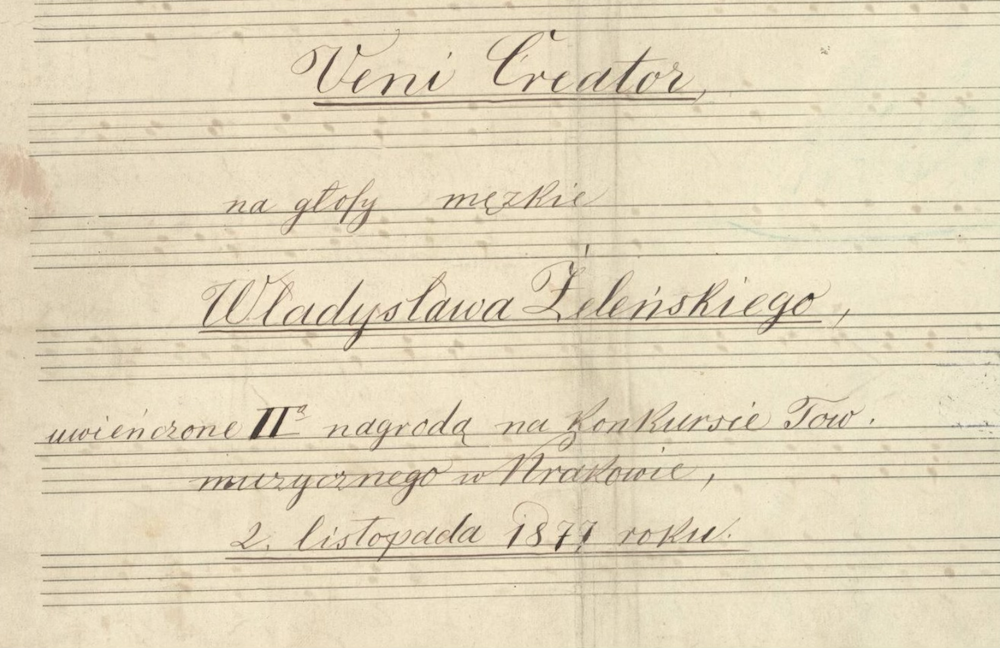 Veni Creator,
na głosy męzkie
Władysława Żeleńskiego,
uwieńczone IIą nagrodą na konkursie Tow.
muzycznego w Krakowie,
2. listopada 1877 roku.